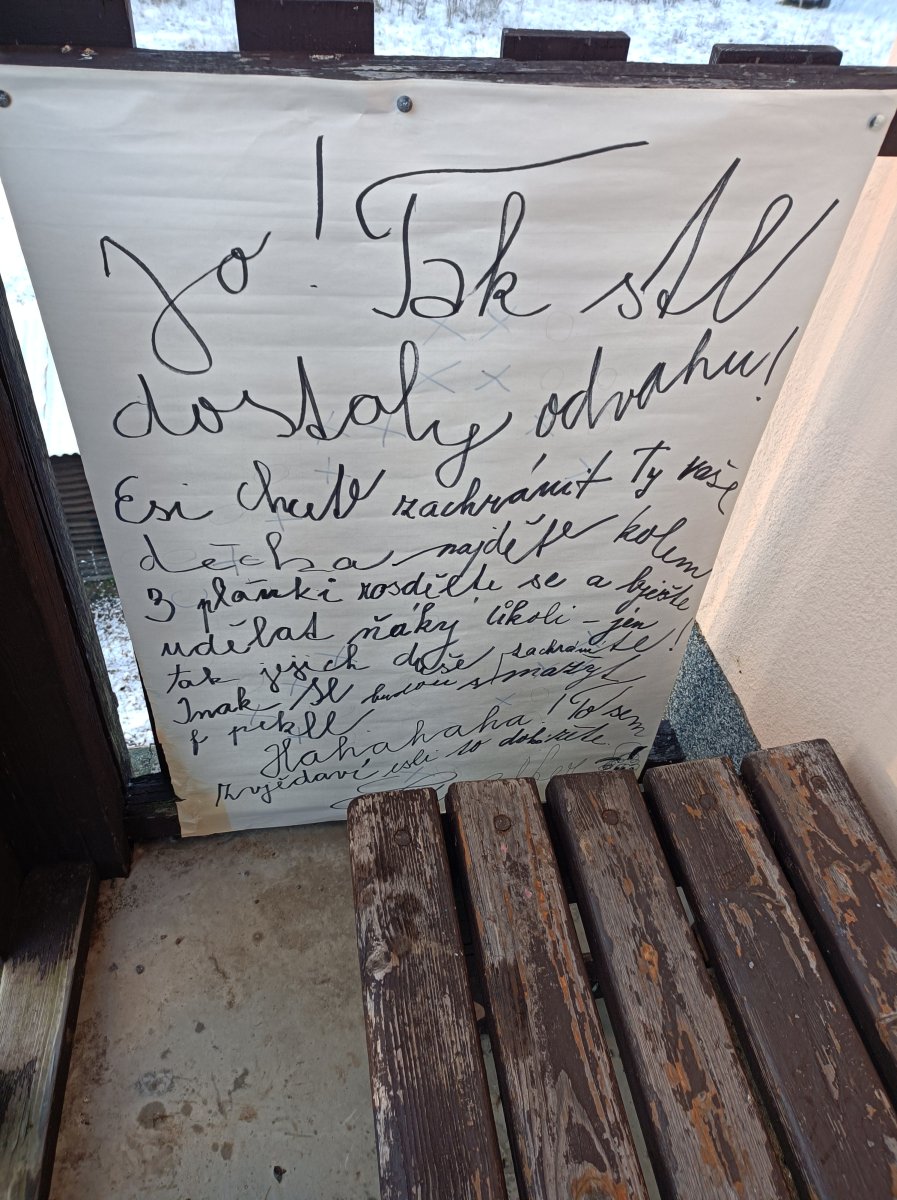 Jo! Tak ste
dostaly odvahu!
Esi chcete zachránit Ty vaše
děcka najděte kolem
3 plánki rosdělte se a bježte
udělat ňáký úkoli - jen
tak jejich duše zachráníte!
Inak se budou smažyt
f pekle
Hahahaha! To sem
zvjědaví esli to dokážete.